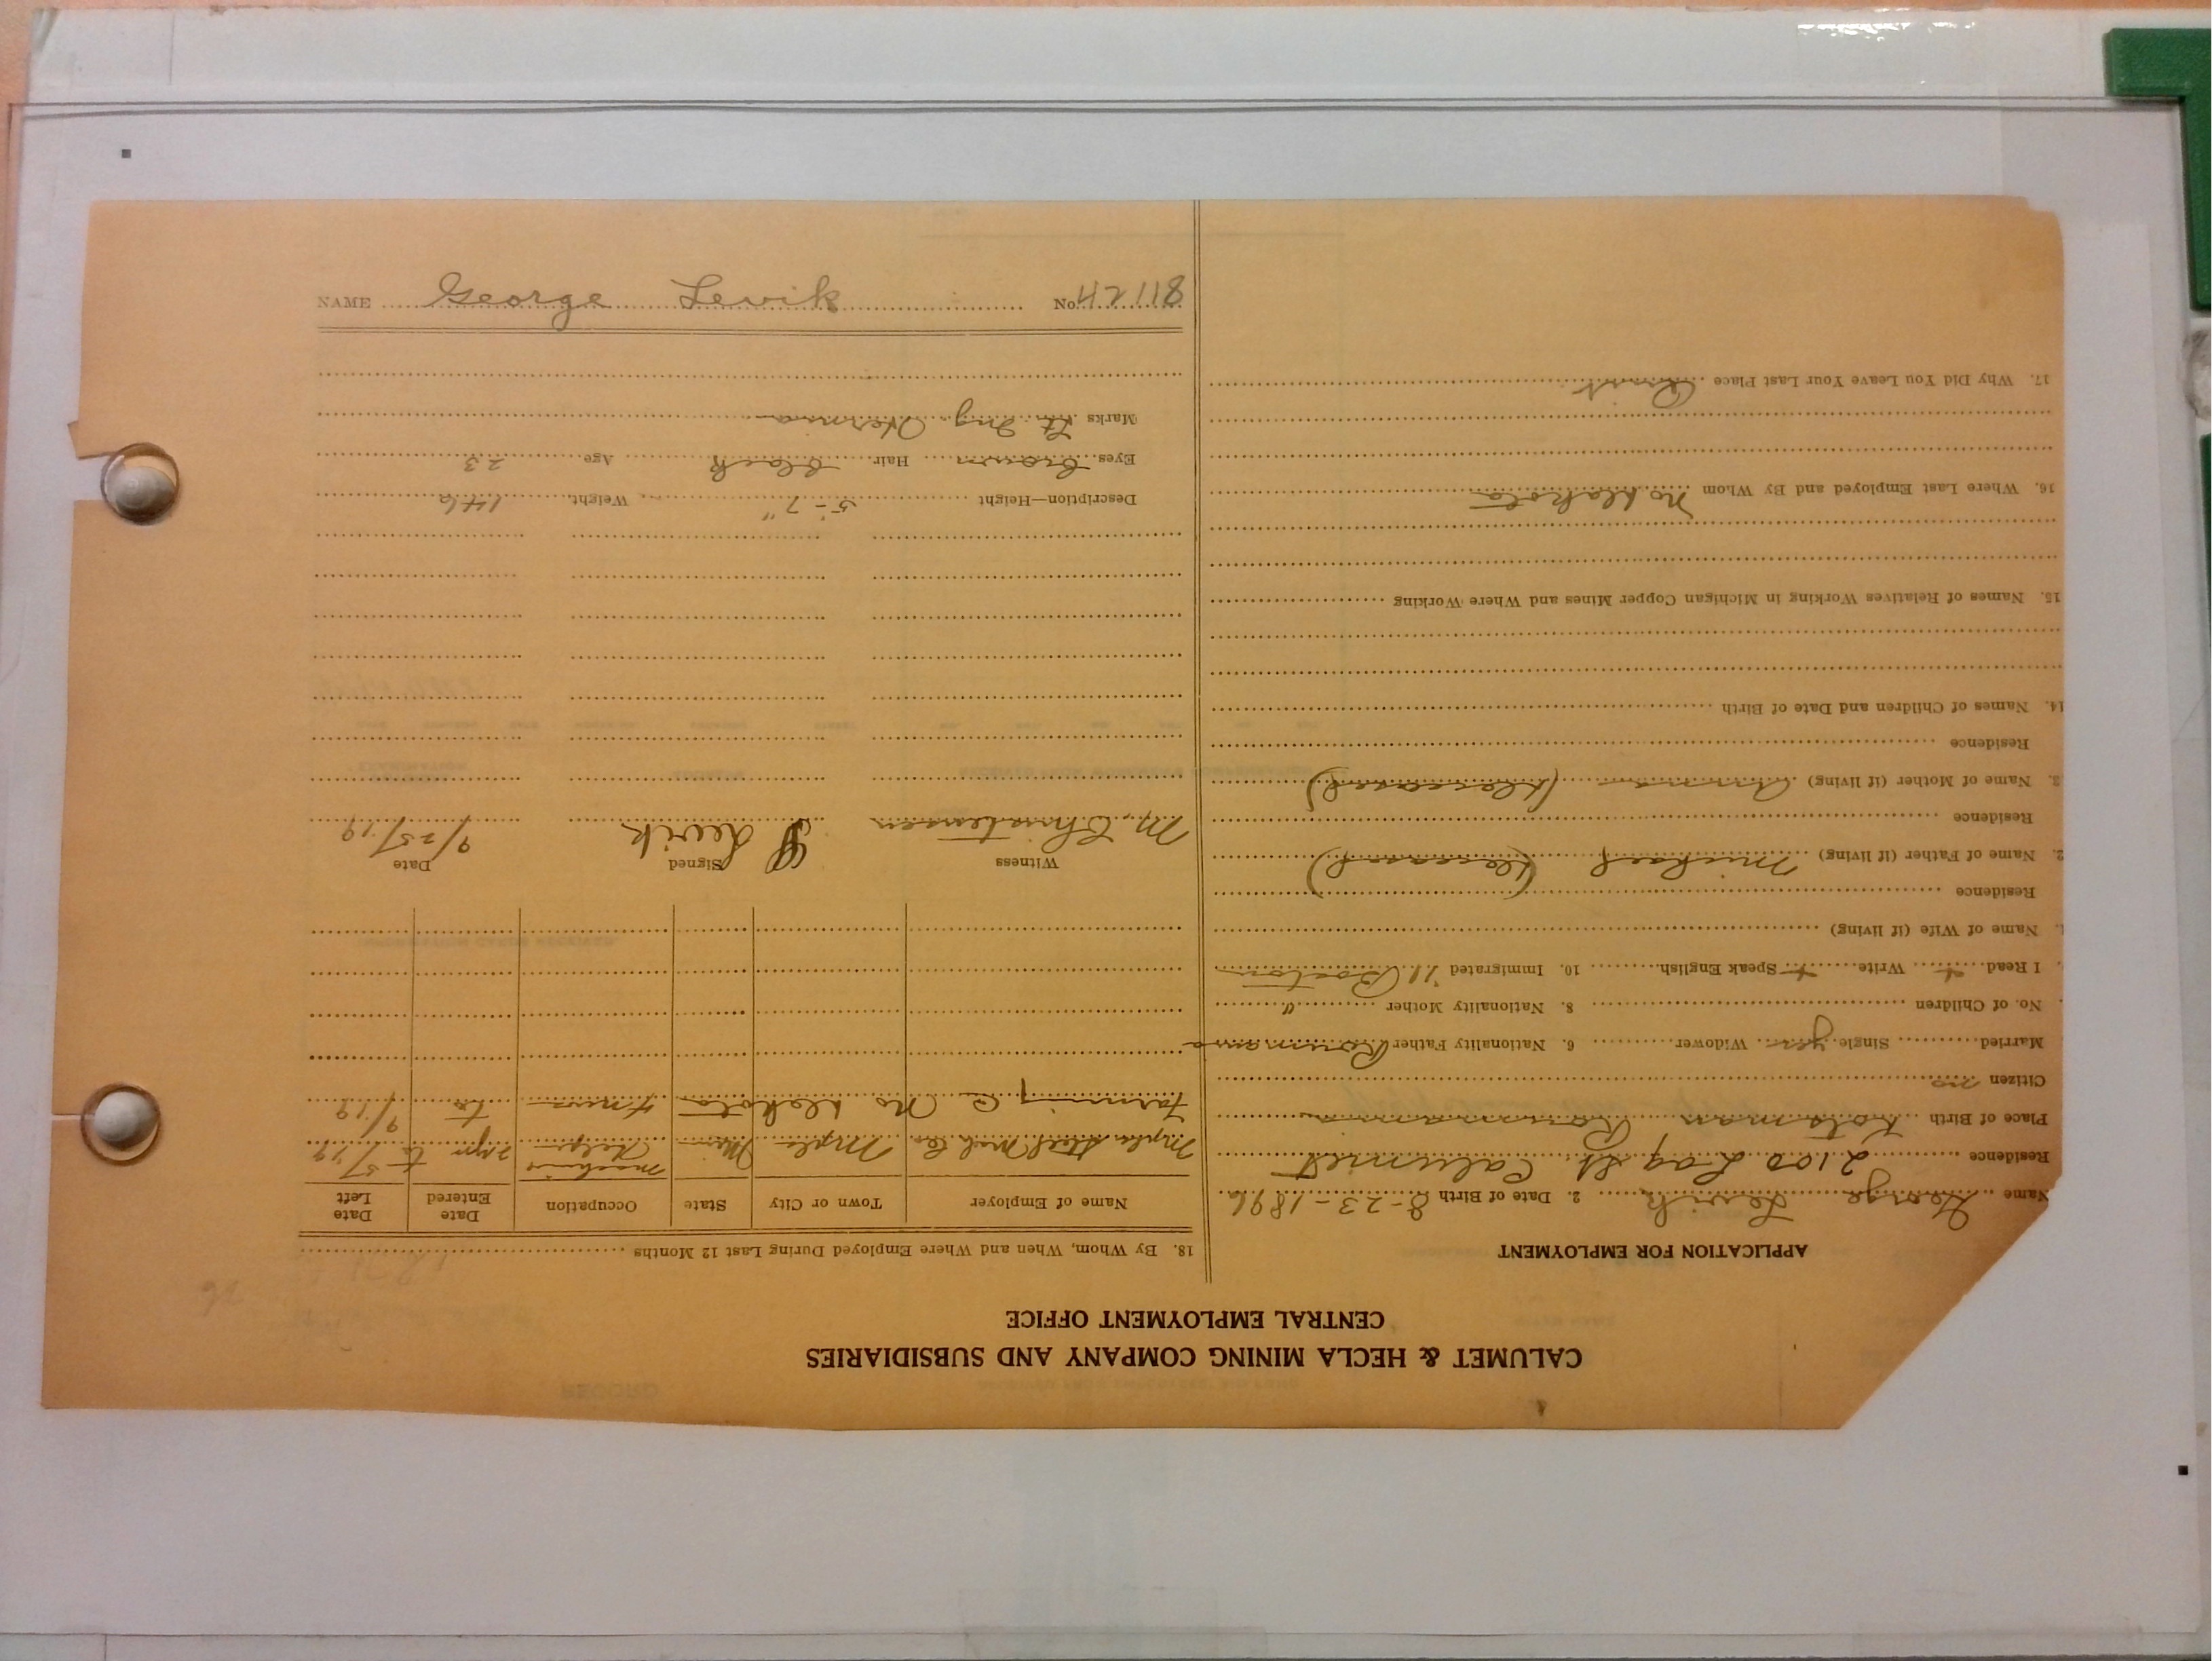 CALUMET & HECLA MINING COMPANY AND SUBSIDIARIES
CENTRAL EMPLOYMENT OFFICE
APPLICATION FOR EMPLOYMENT
Name George Levik 2. Date of Birth 8-23-1896
Residence 2100 Log St. Calumet
Place of Birth Kotsman Roumania
Citizen no
Married Single yes Widower 6. Nationality Father Roumania
No. of Children 8. Nationality Mother "
I Read + Write + Speak English 10. Immigrated '11 Boston
1. Name of Wife (if living)
Residence
2. Name of Father (if living) Michael (deceased)
Residence
3. Name of Mother (if living) Anna (deceased)
Residence
14. Names of Children and Date of Birth
15. Names of Relatives Working in Michigan Copper Mines and Where Working
16. Where Last Employed and By Whom No Dakota
17. Why Did You Leave Your Last Place Quit
18. By Whom, When and Where Employed During Last 12 Months
Name of Employer Town or City State Occupation Date Entered Date Left
Mpls Steel Mch Co. Mpls Min machine helper 2 yr to 5/19
Farming No Dakota 4 mos to 9/19
Witness Signed Date
M. Christensen G Levik 9/25/19
Description—Height 5-7" Weight 146
Eyes brown Hair black Age 23
Marks Lt. Ing. Hernia
NAME George Levik No. 42118